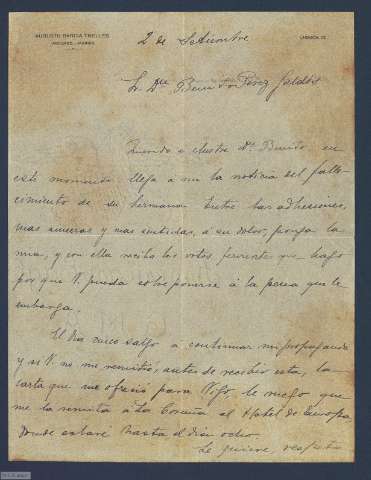 AUGUSTO BARCIA TRELLES
ABOGADO - MADRID
2 de Setiembre
Sr. Dn. Benito Pérez Galdós
Querido e ilustre Dn. Benito: en
este momento llega á mi la noticia del falle-
cimiento de su hermana. Entre las adhesiones,
mas sinceras y mas sentidas, á su dolor, ponga la
mia, y con ella reciba los votos ferviente que hago
por que V. pueda sobreponerse á la pena que le
embarga.
El dia cinco salgo a continuar mi propaganda
y si V. no me remitió, antes de recibir esta, la
carta que me ofreció para Vigo, le ruego que
me la remita á La Coruña al Hotel de Europa
Donde estaré hasta el dia ocho.
Le quiere y respeta